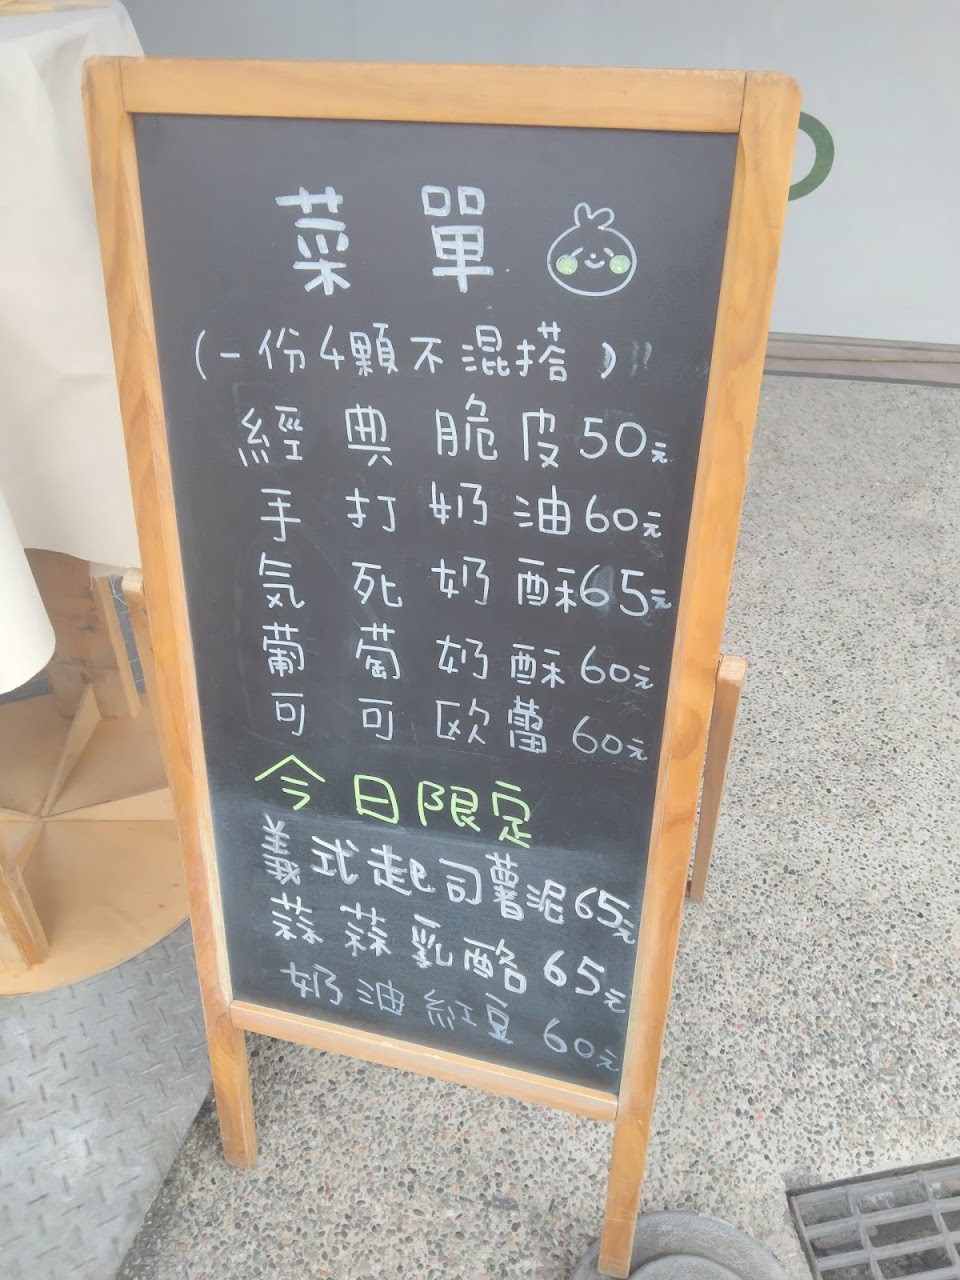 菜單
(一份4顆不混搭)
經典脆皮50元
手打奶油60元
気死奶酥65元
葡萄奶酥60元
可可歐蕾60元
今日限定
義式起司薯泥65元
蒜蒜乳酪65元
奶油紅豆60元